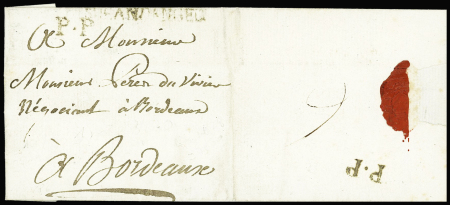 P.P
A Monsieur
Monsieur Péres du Vivier
Négociant à Bordeaux
à Bordeaux
P.P